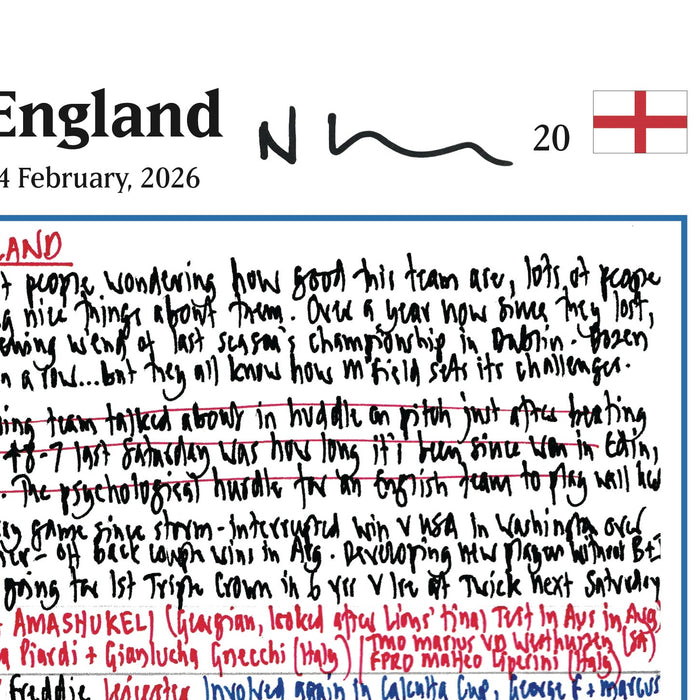 England
20
4 February, 2026
LAND
people wondering how good this team are, lots of people
nice things about them. Over a year now since they lost,
wend of last season's championship in Dublin. Dozen
n a row...but they all know how m'field sets its challenges.
ing team talked about in huddle on pitch just after beating
48-7 last Saturday was how long it's been since won in Edin,
. The psychological hurdle for an English team to play well
game since storm-interrupted win v USA in Washington over
- off back wins in Arg. Developing new players without B+I
going for 1st Triple Crown in 6 yrs v Ire at Twick next Saturday
AMASHUKELI (Georgian, looked after Lions' final Test in Aus in Aug)
a Piardi + Gianlucha Gnecchi (Italy) TMO marius vd Westhuizen (SA)
FPRO matteo Liperini (Italy)
Freddie Leicester Involved again in Calcutta Cup, George F + marcus